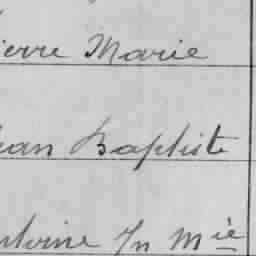 ierre Marie
ean Baptiste
ntoine Jn Mie